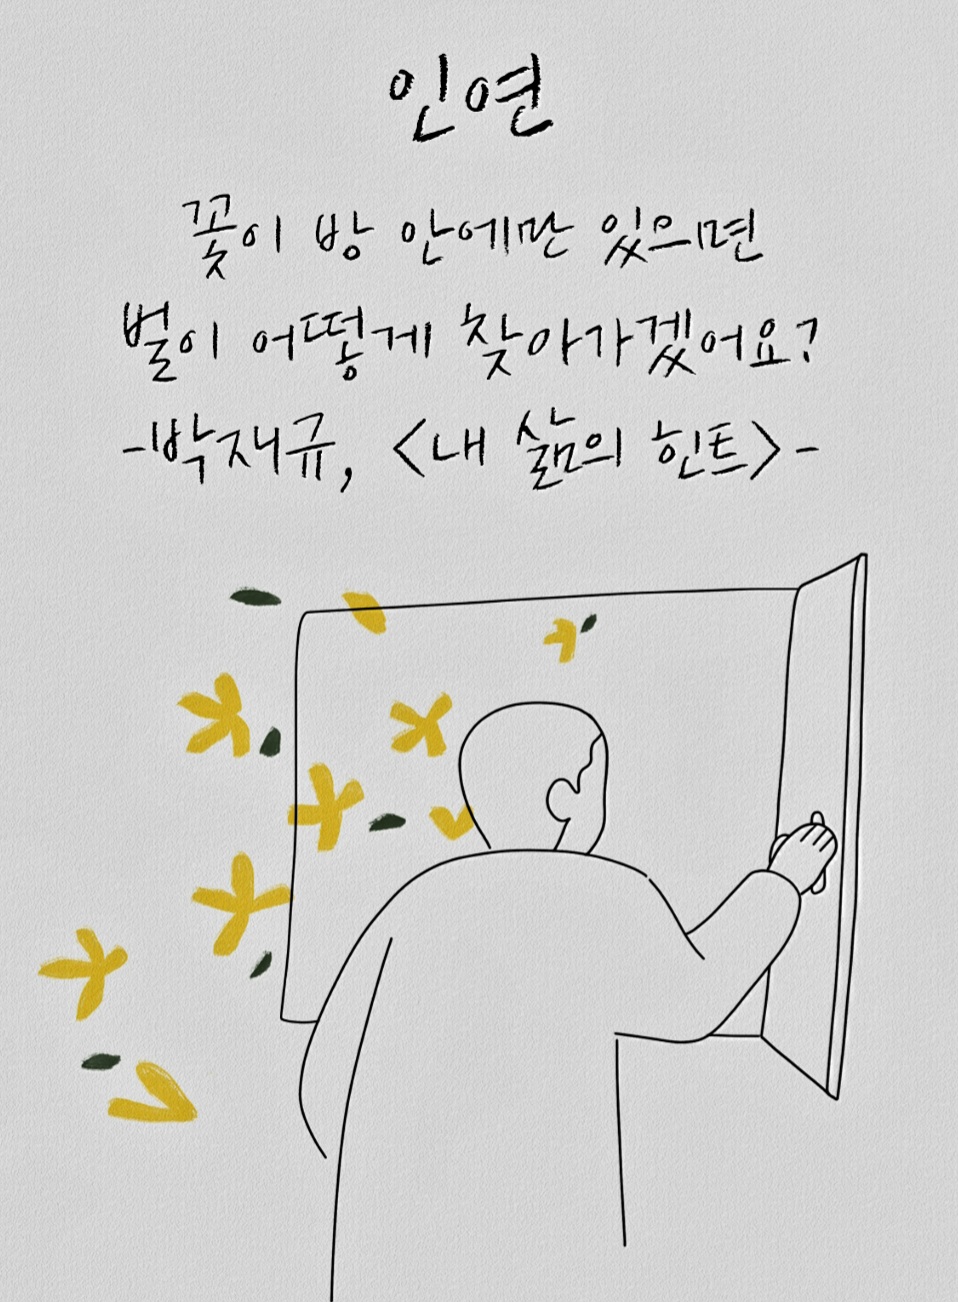 인연
꽃이 방 안에만 있으면
벌이 어떻게 찾아가겠어요?
-박재규, <내 삶의 힌트>-